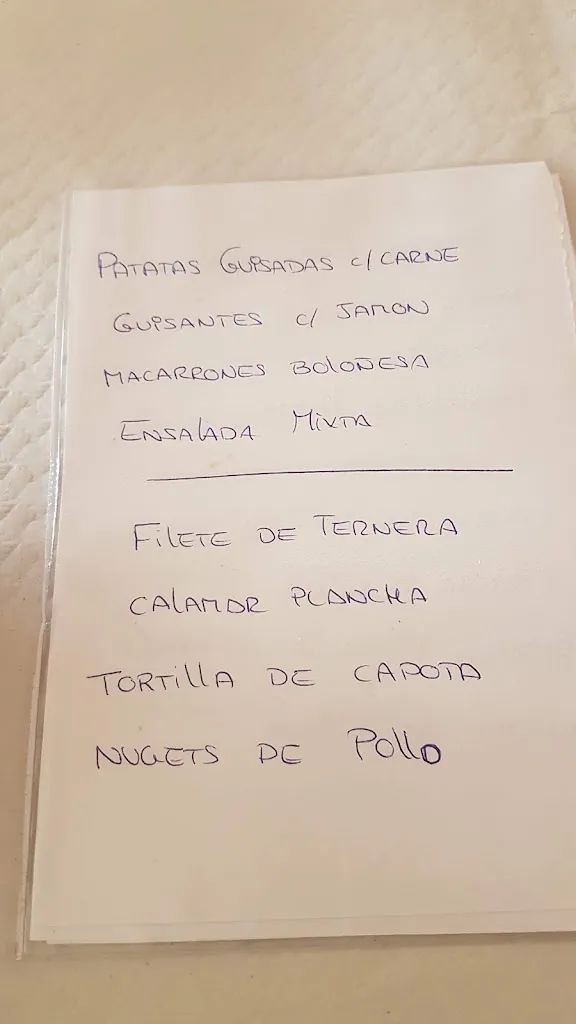 PATATAS GUISADAS c/ CARNE
GUISANTES c/ JAMON
MACARRONES BOLOÑESA
ENSALADA MIXTA
FILETE DE TERNERA
CALAMAR PLANCHA
TORTILLA DE CAPOTA
NUGETS DE POLLO